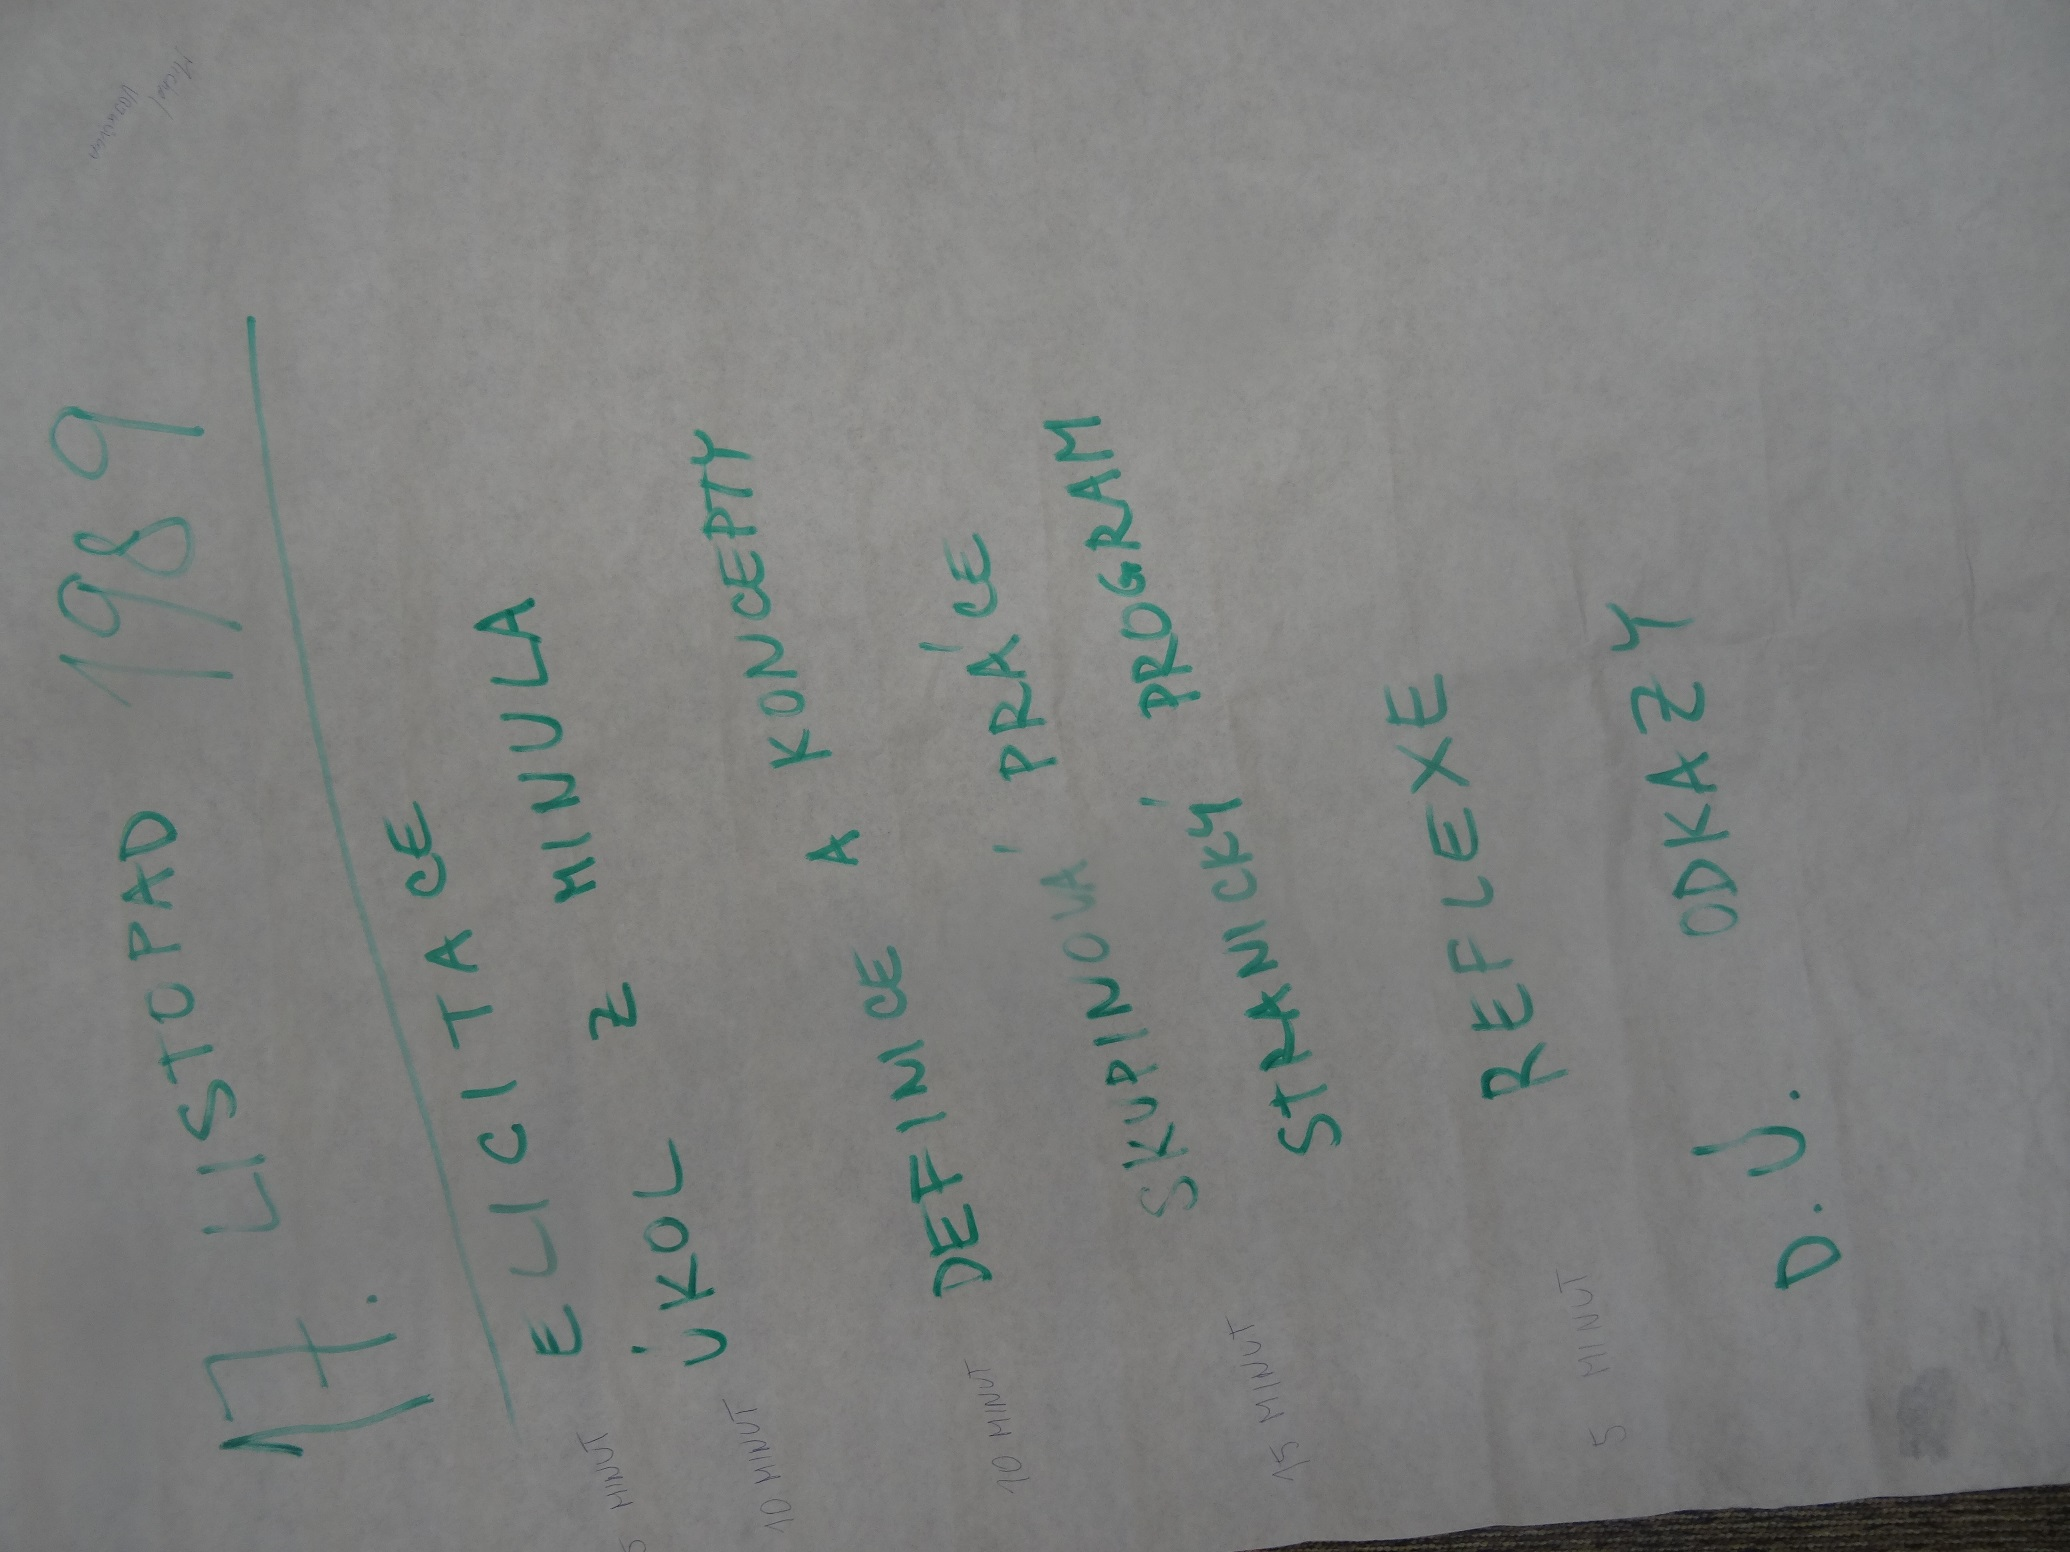 17. LISTOPAD 1989
5 MINUT ELICITACE
10 MINUT ÚKOL Z MINULA
10 MINUT DEFINICE A KONCEPTY
15 MINUT SKUPINOVÁ PRÁCE
STRANICKÝ PROGRAM
5 MINUT REFLEXE
D.Ú. ODKAZY
Michal